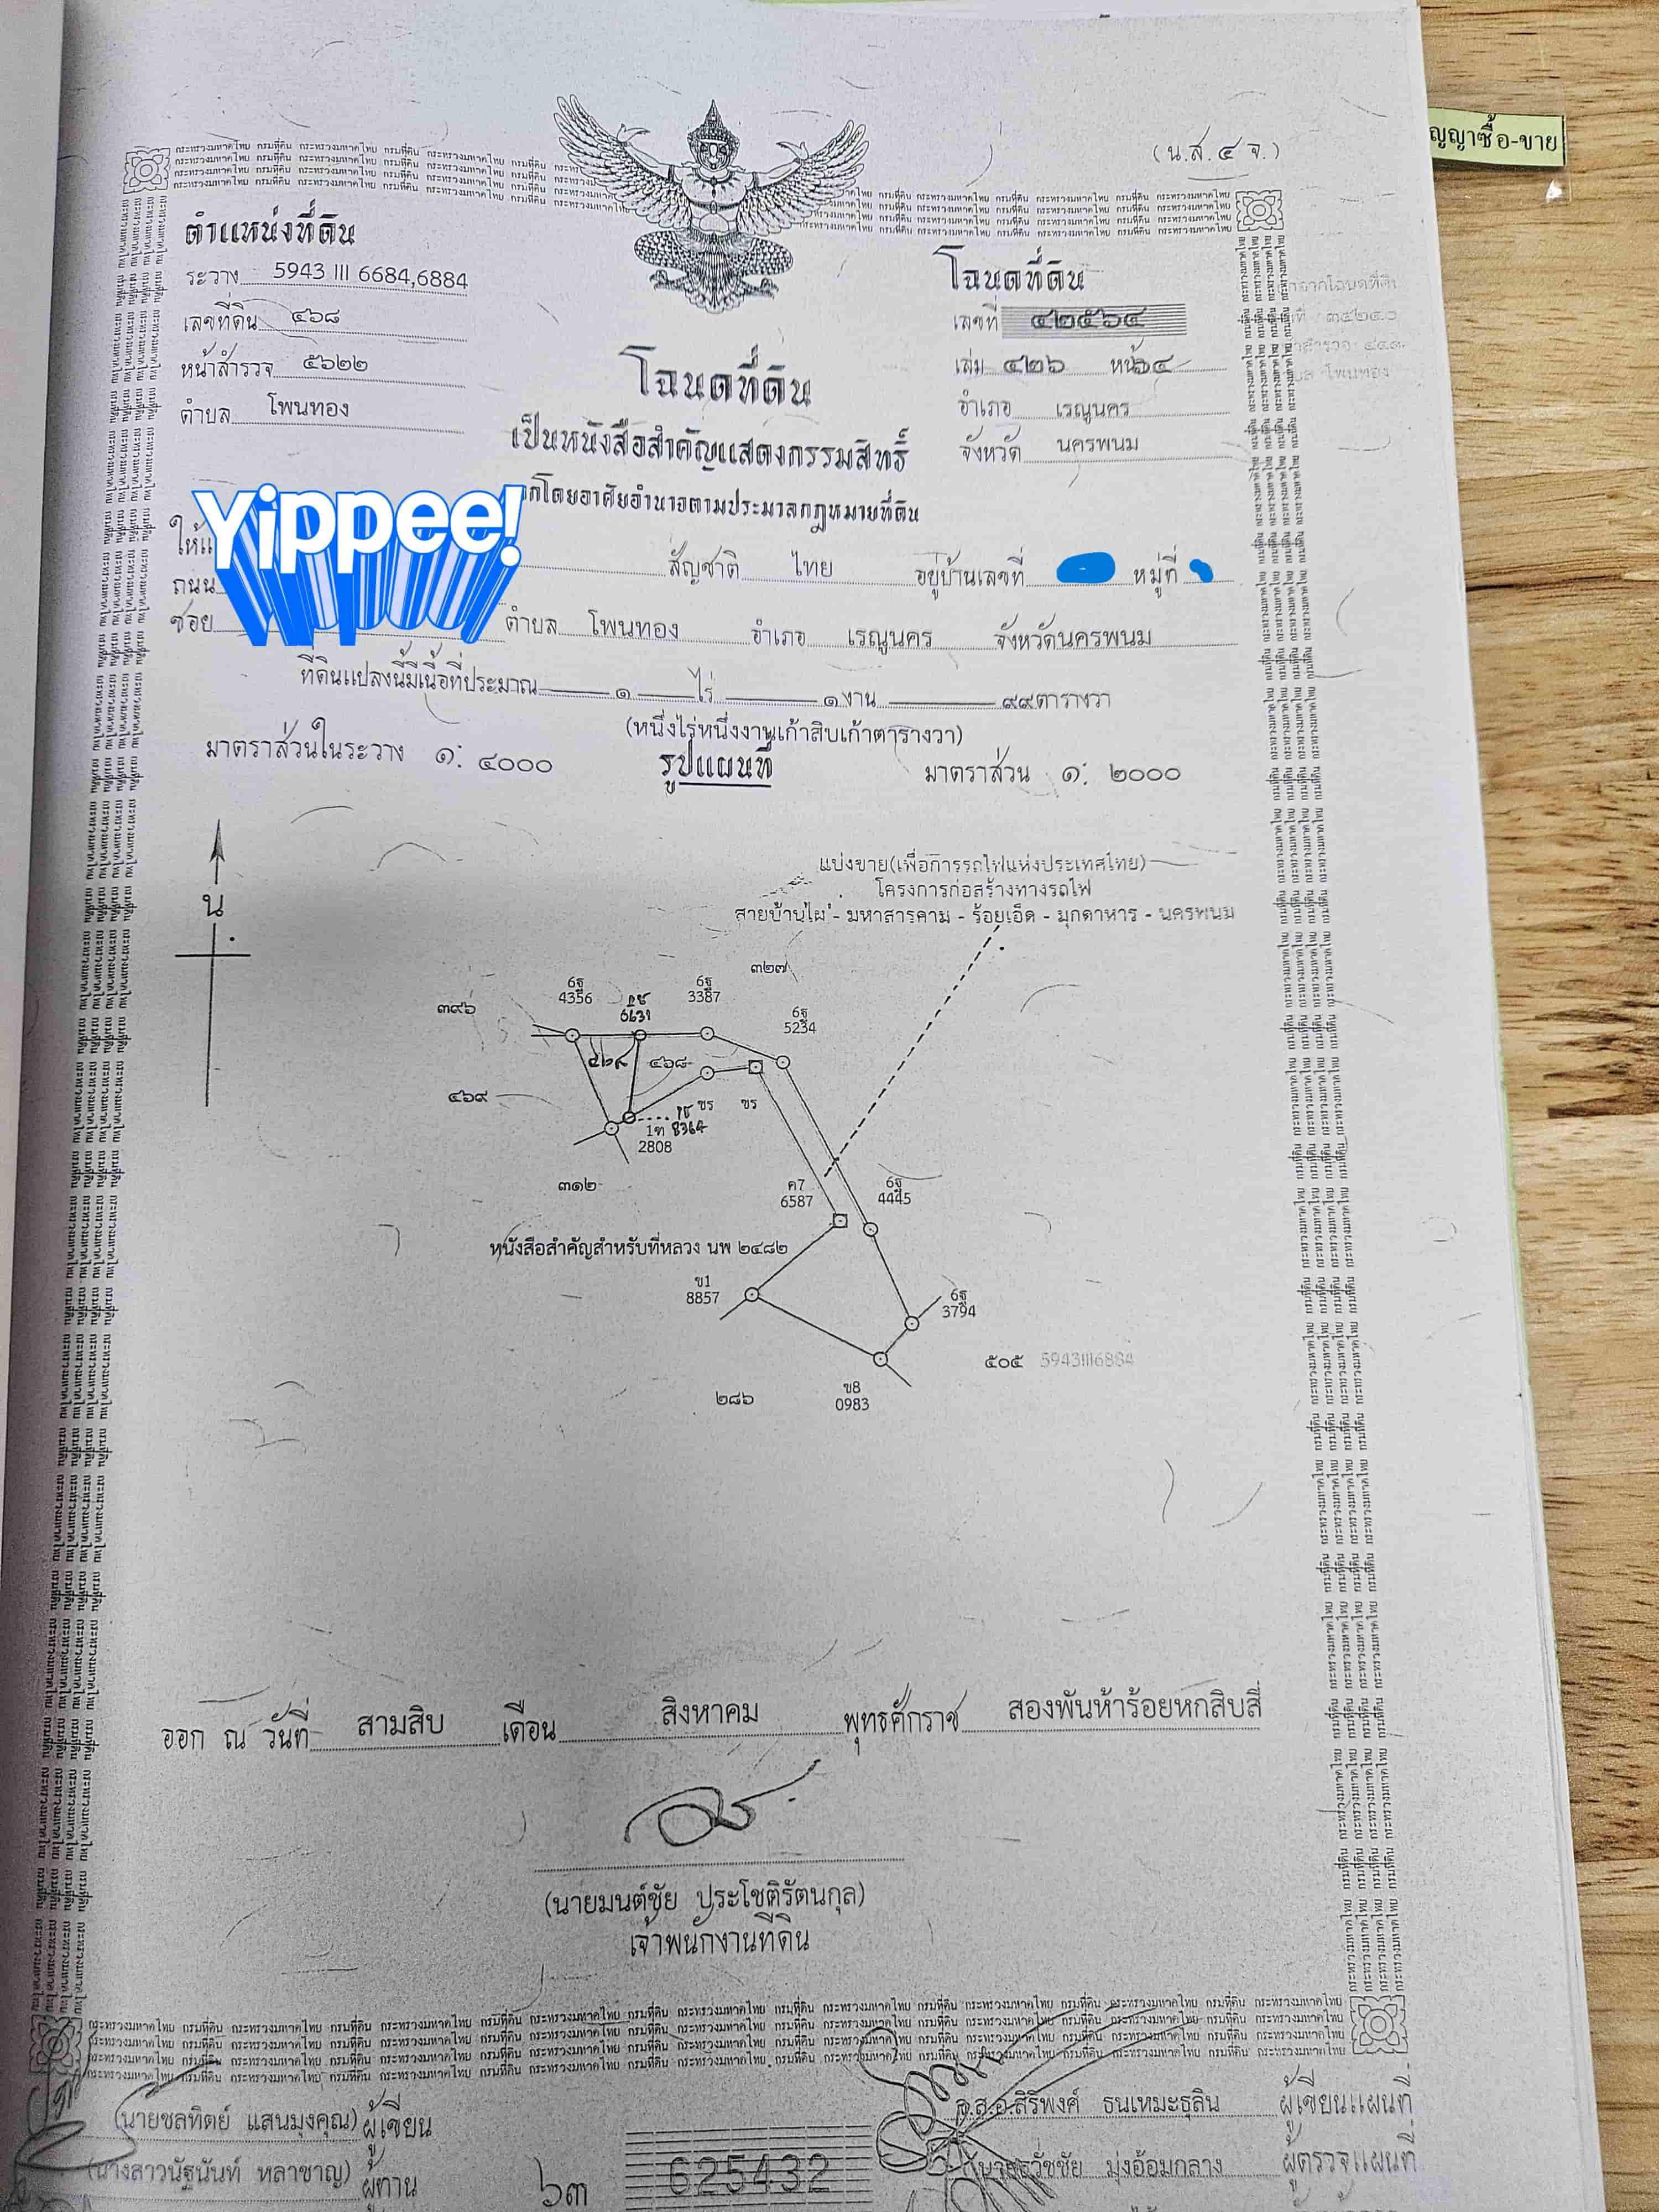 สัญญาซื้อ-ขาย
(น.ส. ๔ จ.)
ตำแหน่งที่ดิน
ระวาง 5943 III 6684,6884
เลขที่ดิน ๔๖๘
หน้าสำรวจ ๕๖๒๒
ตำบล โพนทอง
โฉนดที่ดิน
เลขที่ ๔๒๕๖๔
เล่ม ๔๒๖ หน้า ๖๔
อำเภอ เรณูนคร
จังหวัด นครพนม
โฉนดที่ดิน
เป็นหนังสือสำคัญแสดงกรรมสิทธิ์
โดยอาศัยอำนาจตามประมวลกฎหมายที่ดิน
Yippee!
สัญชาติ ไทย อยู่บ้านเลขที่ หมู่ที่
ถนน
ซอย ตำบล โพนทอง อำเภอ เรณูนคร จังหวัดนครพนม
ที่ดินแปลงนี้มีเนื้อที่ประมาณ ๑ ไร่ ๑ งาน ๙๙ ตารางวา
(หนึ่งไร่หนึ่งงานเก้าสิบเก้าตารางวา)
มาตราส่วนในระวาง ๑: ๔๐๐๐ รูปแผนที่ มาตราส่วน ๑: ๒๐๐๐
น
แบ่งขาย(เพื่อการรถไฟแห่งประเทศไทย)
โครงการก่อสร้างทางรถไฟ
สายบ้านไผ่ - มหาสารคาม - ร้อยเอ็ด - มุกดาหาร - นครพนม
๓๒๗
๓๙๖
6ฐ 4356
6631
6ฐ 3387
6ฐ 5234
๔๖๘
๔๖๙
ชร ชร
1ท 2808
8364
๓๑๒
ค7 6587
6ฐ 4445
หนังสือสำคัญสำหรับที่หลวง นพ ๒๔๘๒
ข1 8857
6ฐ 3794
๕๐๕ 5943III6884
๒๘๖
ข8 0983
ออก ณ วันที่ สามสิบ เดือน สิงหาคม พุทธศักราช สองพันห้าร้อยหกสิบสี่
(นายมนต์ชัย ประโชติรัตนกุล)
เจ้าพนักงานที่ดิน
(นายชลทิตย์ แสนมุงคุณ) ผู้เขียน
(นางสาวนัฐนันท์ หลาชาญ) ผู้ทาน
๖๓
625432
จ.ส.อ.สิริพงศ์ ธนเหมะธุลิน ผู้เขียนแผนที่
นายธวัชชัย มุ่งอ้อมกลาง ผู้ตรวจแผนที่